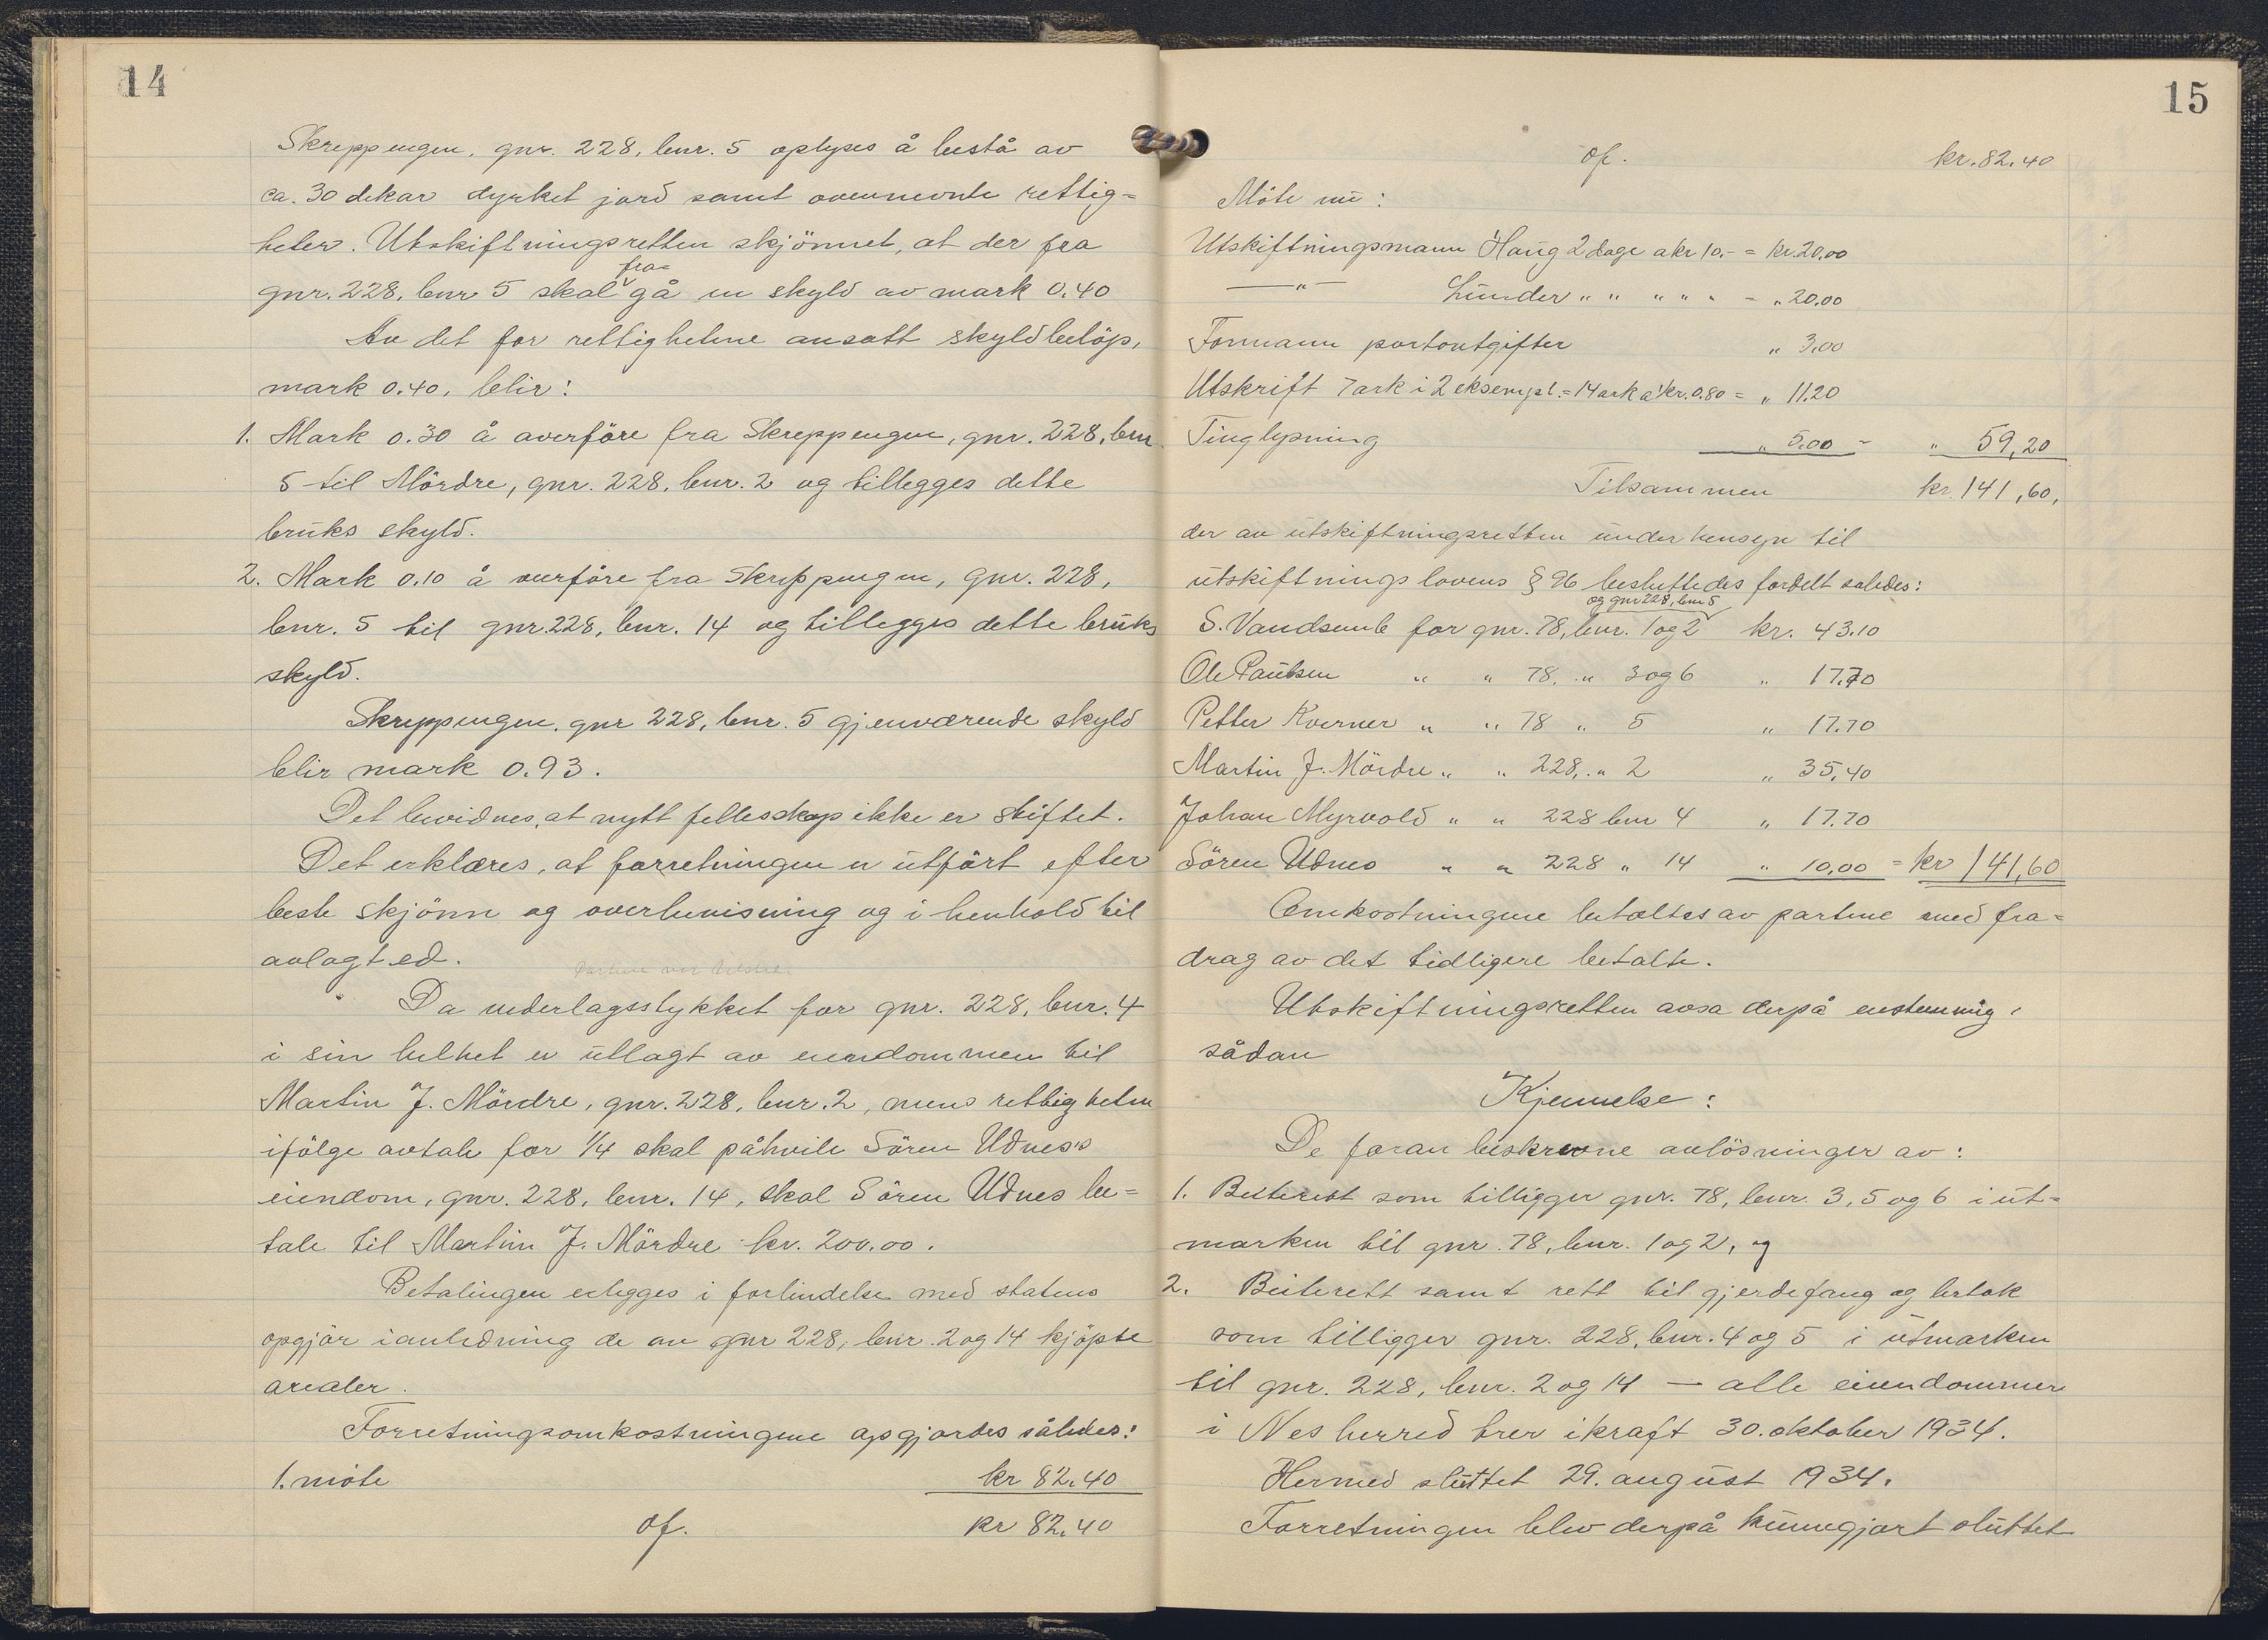 14
Skreppengen, gnr. 228, bnr. 5 oplyses å bestå av
ca. 30 dekar dyrket jord samt ovennevnte rettig=
heter. Utskiftningsretten skjönnet, at der fra
fra=
gnr. 228, bnr 5 skal gå en skyld av mark 0.40
Av det for rettighetene ansatt skyldbelöp,
mark 0.40, blir:
1. Mark 0.30 å overföre fra Skreppengen, gnr. 228, bnr
5 til Mördre, gnr. 228, bnr. 2 og tillegges dette
bruks skyld.
2. Mark 0.10 å overföre fra Skreppengen, gnr. 228,
bnr. 5 til gnr. 228, bnr. 14 og tillegges dette bruks
skyld.
Skreppengen, gnr 228, bnr. 5 gjenværende skyld
blir mark 0.93.
Det bevidnes, at nytt fellesskap ikke er stiftet.
Det erklæres, at forretningen er utfört efter
beste skjönn og overbevisning og i henhold til
avlagt ed.
Da vederlagsstykket for gnr. 228, bnr. 4
i sin helhet er utlagt av eiendommen til
Martin J. Mördre, gnr. 228, bnr. 2, mens rettigheten
ifölge avtale for 1/4 skal påhvile Sören Udnes's
eiendom, gnr. 228, bnr. 14, skal Sören Udnes be=
tale til Martin J. Mördre kr. 200.00.
Betalingen erlegges i forbindelse med statens
opgjör i anledning de av gnr 228, bnr. 2 og 14 kjöpte
arealer.
Forretningsomkostningene opgjordes således:
1. möte kr 82.40
of. kr 82.40
15
of. kr. 82.40
Möte nu:
Utskiftningsmann Haug 2 dage a kr 10.- = kr. 20.00
—"— Lunder " " " " " = " 20.00
Formann portoutgifter " 3.00
Utskrift 7 ark i 2 eksempl. = 14 ark a' kr. 0.80 = " 11.20
Tinglysning " 5.00 = " 59,20
Tilsammen kr. 141,60,
der av utskiftningsretten under hensyn til
utskiftningslovens § 96 besluttedes fordelt saledes:
og gnr 228, bnr 5
S. Vandsemb for gnr. 78, bnr. 1 og 2 kr. 43.10
Ole Paulsen " " 78, " 3 og 6 " 17.70
Petter Kverner " " 78 " 5 " 17.70
Martin J. Mördre " " 228, " 2 " 35,40
Johan Myrvold " " 228 bnr 4 " 17.70
Sören Udnes " " 228 " 14 " 10,00 = kr 141,60
Omkostningene betaltes av partene med fra=
drag av det tidligere betalte.
Utskiftningsretten avsa derpå enstemmig
sådan
Kjennelse:
De foran beskrevne avlösninger av:
1. Beiterett som tilligger gnr. 78, bnr. 3, 5 og 6 i ut=
marken til gnr. 78, bnr. 1 og 2, og
2. Beiterett samt rett til gjerdefang og
som tilligger gnr. 228, bnr. 4 og 5 i utmarken
til gnr. 228, bnr. 2 og 14 — alle eiendommer
i Nes herred trer ikraft 30. oktober 1934.
Hermed sluttet 29. august 1934.
Forretningen blev derpå kunngjort sluttet